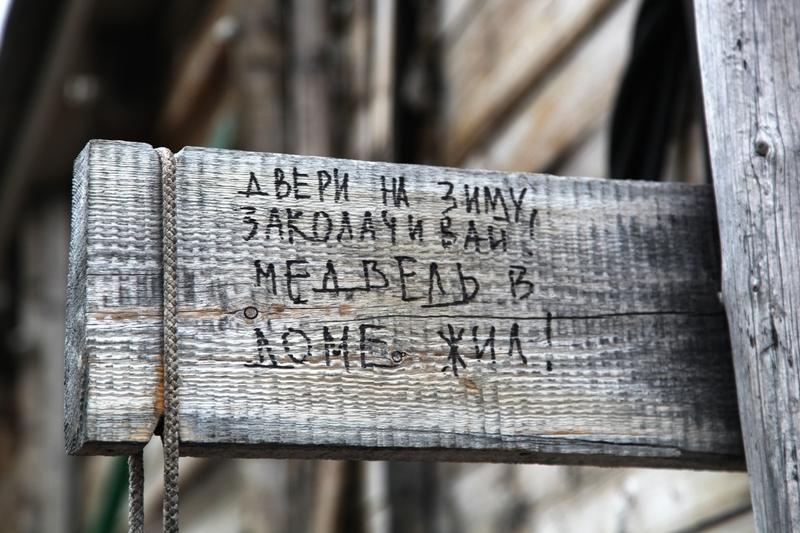 ДВЕРИ НА ЗИМУ
ЗАКОЛАЧИВАЙ!
МЕДВЕДЬ В
ДОМЕ ЖИЛ!